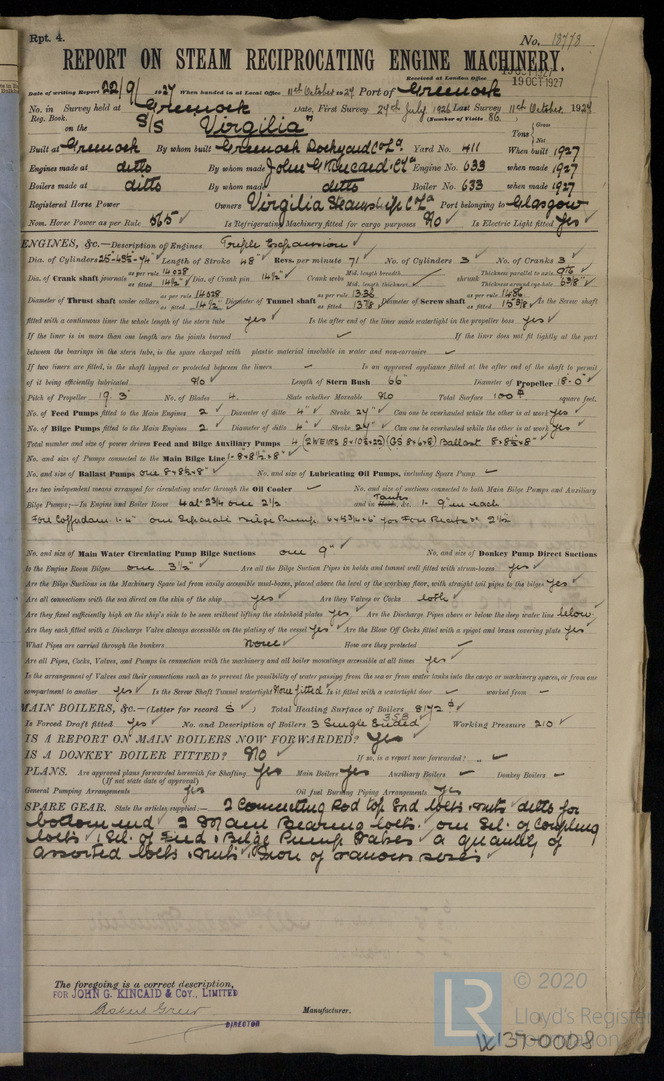 Rpt. 4.
No. 18778
REPORT ON STEAM RECIPROCATING ENGINE MACHINERY.
Received at London Office 19 OCT 1927
Date of writing Report 22/9/1927 When handed in at Local Office 11th October 1927 Port of Greenock
No. in Reg. Book. Survey held at Greenock Date, First Survey 27th July 1926 Last Survey 11th October 1927
(Number of Visits 86)
on the S/S "Virgilia" Tons Gross Net
Built at Greenock By whom built Greenock Dockyard Co Ld Yard No. 411 When built 1927
Engines made at ditto By whom made John G Kincaid & Co Ld Engine No. 633 when made 1927
Boilers made at ditto By whom made ditto Boiler No. 633 when made 1927
Registered Horse Power Owners Virgilia Steamship Co Ld Port belonging to Glasgow
Nom. Horse Power as per Rule 565 Is Refrigerating Machinery fitted for cargo purposes No Is Electric Light fitted Yes
ENGINES, &c.—Description of Engines Triple Expansion
Dia. of Cylinders Length of Stroke 48" Revs. per minute 71 No. of Cylinders 3 No. of Cranks 3
Dia. of Crank shaft journals as per rule 14.028 as fitted 14½" Dia. of Crank pin 14½" Crank webs Mid. length breadth Mid. length thickness shrunk Thickness parallel to axis 9⅛ Thickness around eye-hole 6⅜"
Diameter of Thrust shaft under collars as per rule 14.028 as fitted 14½" Diameter of Tunnel shaft as per rule 13.36 as fitted 13⅞ Diameter of Screw shaft as per rule 14.86 as fitted 15⅜ Is the Screw shaft
fitted with a continuous liner the whole length of the stern tube yes Is the after end of the liner made watertight in the propeller boss yes
If the liner is in more than one length are the joints burned If the liner does not fit tightly at the part
between the bearings in the stern tube, is the space charged with plastic material insoluble in water and non-corrosive
If two liners are fitted, is the shaft lapped or protected between the liners Is an approved appliance fitted at the after end of the shaft to permit
of it being efficiently lubricated No Length of Stern Bush 66" Diameter of Propeller 18'-0"
Pitch of Propeller 19'.3" No. of Blades 4. State whether Moveable No Total Surface 100 square feet.
No. of Feed Pumps fitted to the Main Engines 2 Diameter of ditto 4" Stroke 24" Can one be overhauled while the other is at work yes
No. of Bilge Pumps fitted to the Main Engines 2 Diameter of ditto 4" Stroke 24" Can one be overhauled while the other is at work yes
Total number and size of power driven Feed and Bilge Auxiliary Pumps 4 (2 WEIRS 8×10½×22) (GS 8×6×8) Ballast 8×8½×8"
No. and size of Pumps connected to the Main Bilge Line 1-8×8½×8"
No. and size of Ballast Pumps one 8×8½×8" No. and size of Lubricating Oil Pumps, including Spare Pump
Are two independent means arranged for circulating water through the Oil Cooler No. and size of suctions connected to both Main Bilge Pumps and Auxiliary
Bilge Pumps;—In Engine and Boiler Room 4 at 2¾ one 2½ and in Holds, &c. Tanks 1- 9" in each
Fore Cofferdam 1-4" one Separate Bilge Pump
No. and size of Main Water Circulating Pump Bilge Suctions one 9" No. and size of Donkey Pump Direct Suctions
to the Engine Room Bilges one 3½" Are all the Bilge Suction Pipes in holds and tunnel well fitted with strum-boxes yes
Are the Bilge Suctions in the Machinery Space led from easily accessible mud-boxes, placed above the level of the working floor, with straight tail pipes to the bilges yes
Are all connections with the sea direct on the skin of the ship yes Are they Valves or Cocks both
Are they fixed sufficiently high on the ship's side to be seen without lifting the stokehold plates yes Are the Discharge Pipes above or below the deep water line below
Are they each fitted with a Discharge Valve always accessible on the plating of the vessel yes Are the Blow Off Cocks fitted with a spigot and brass covering plate yes
What Pipes are carried through the bunkers None How are they protected
Are all Pipes, Cocks, Valves, and Pumps in connection with the machinery and all boiler mountings accessible at all times yes
Is the arrangement of Valves and their connections such as to prevent the possibility of water passing from the sea or from water tanks into the cargo or machinery spaces, or from one
compartment to another yes Is the Screw Shaft Tunnel watertight None fitted Is it fitted with a watertight door worked from
MAIN BOILERS, &c.—(Letter for record S) Total Heating Surface of Boilers 8172
Is Forced Draft fitted Yes No. and Description of Boilers 3 Single Ended 3SB Working Pressure 210
IS A REPORT ON MAIN BOILERS NOW FORWARDED? Yes
IS A DONKEY BOILER FITTED? No If so, is a report now forwarded?
PLANS. Are approved plans forwarded herewith for Shafting Yes Main Boilers Yes Auxiliary Boilers Donkey Boilers
(If not state date of approval)
General Pumping Arrangements yes Oil fuel Burning Piping Arrangements Yes
SPARE GEAR. State the articles supplied:— 2 Connecting Rod top End bolts & nuts ditto for
bottom end 2 Main Bearing bolts. one Set of Coupling
bolts 1 Set of Feed & Bilge Pump Valves a quantity of
assorted bolts & nuts Iron of various sizes
The foregoing is a correct description,
FOR JOHN G. KINCAID & COY., LIMITED
Robert Greer
DIRECTOR
Manufacturer.
LR
© 2020
Lloyd's Register
Foundation
W137-0008